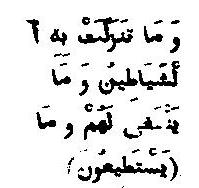 وَ مَا تَنَزَّلَتْ بِهِ ٱ
لْشَيَاطِينُ وَ مَا
يَنْبَغِى لَهُمْ وَ مَا
(يَسْتَطِيعُونَ)